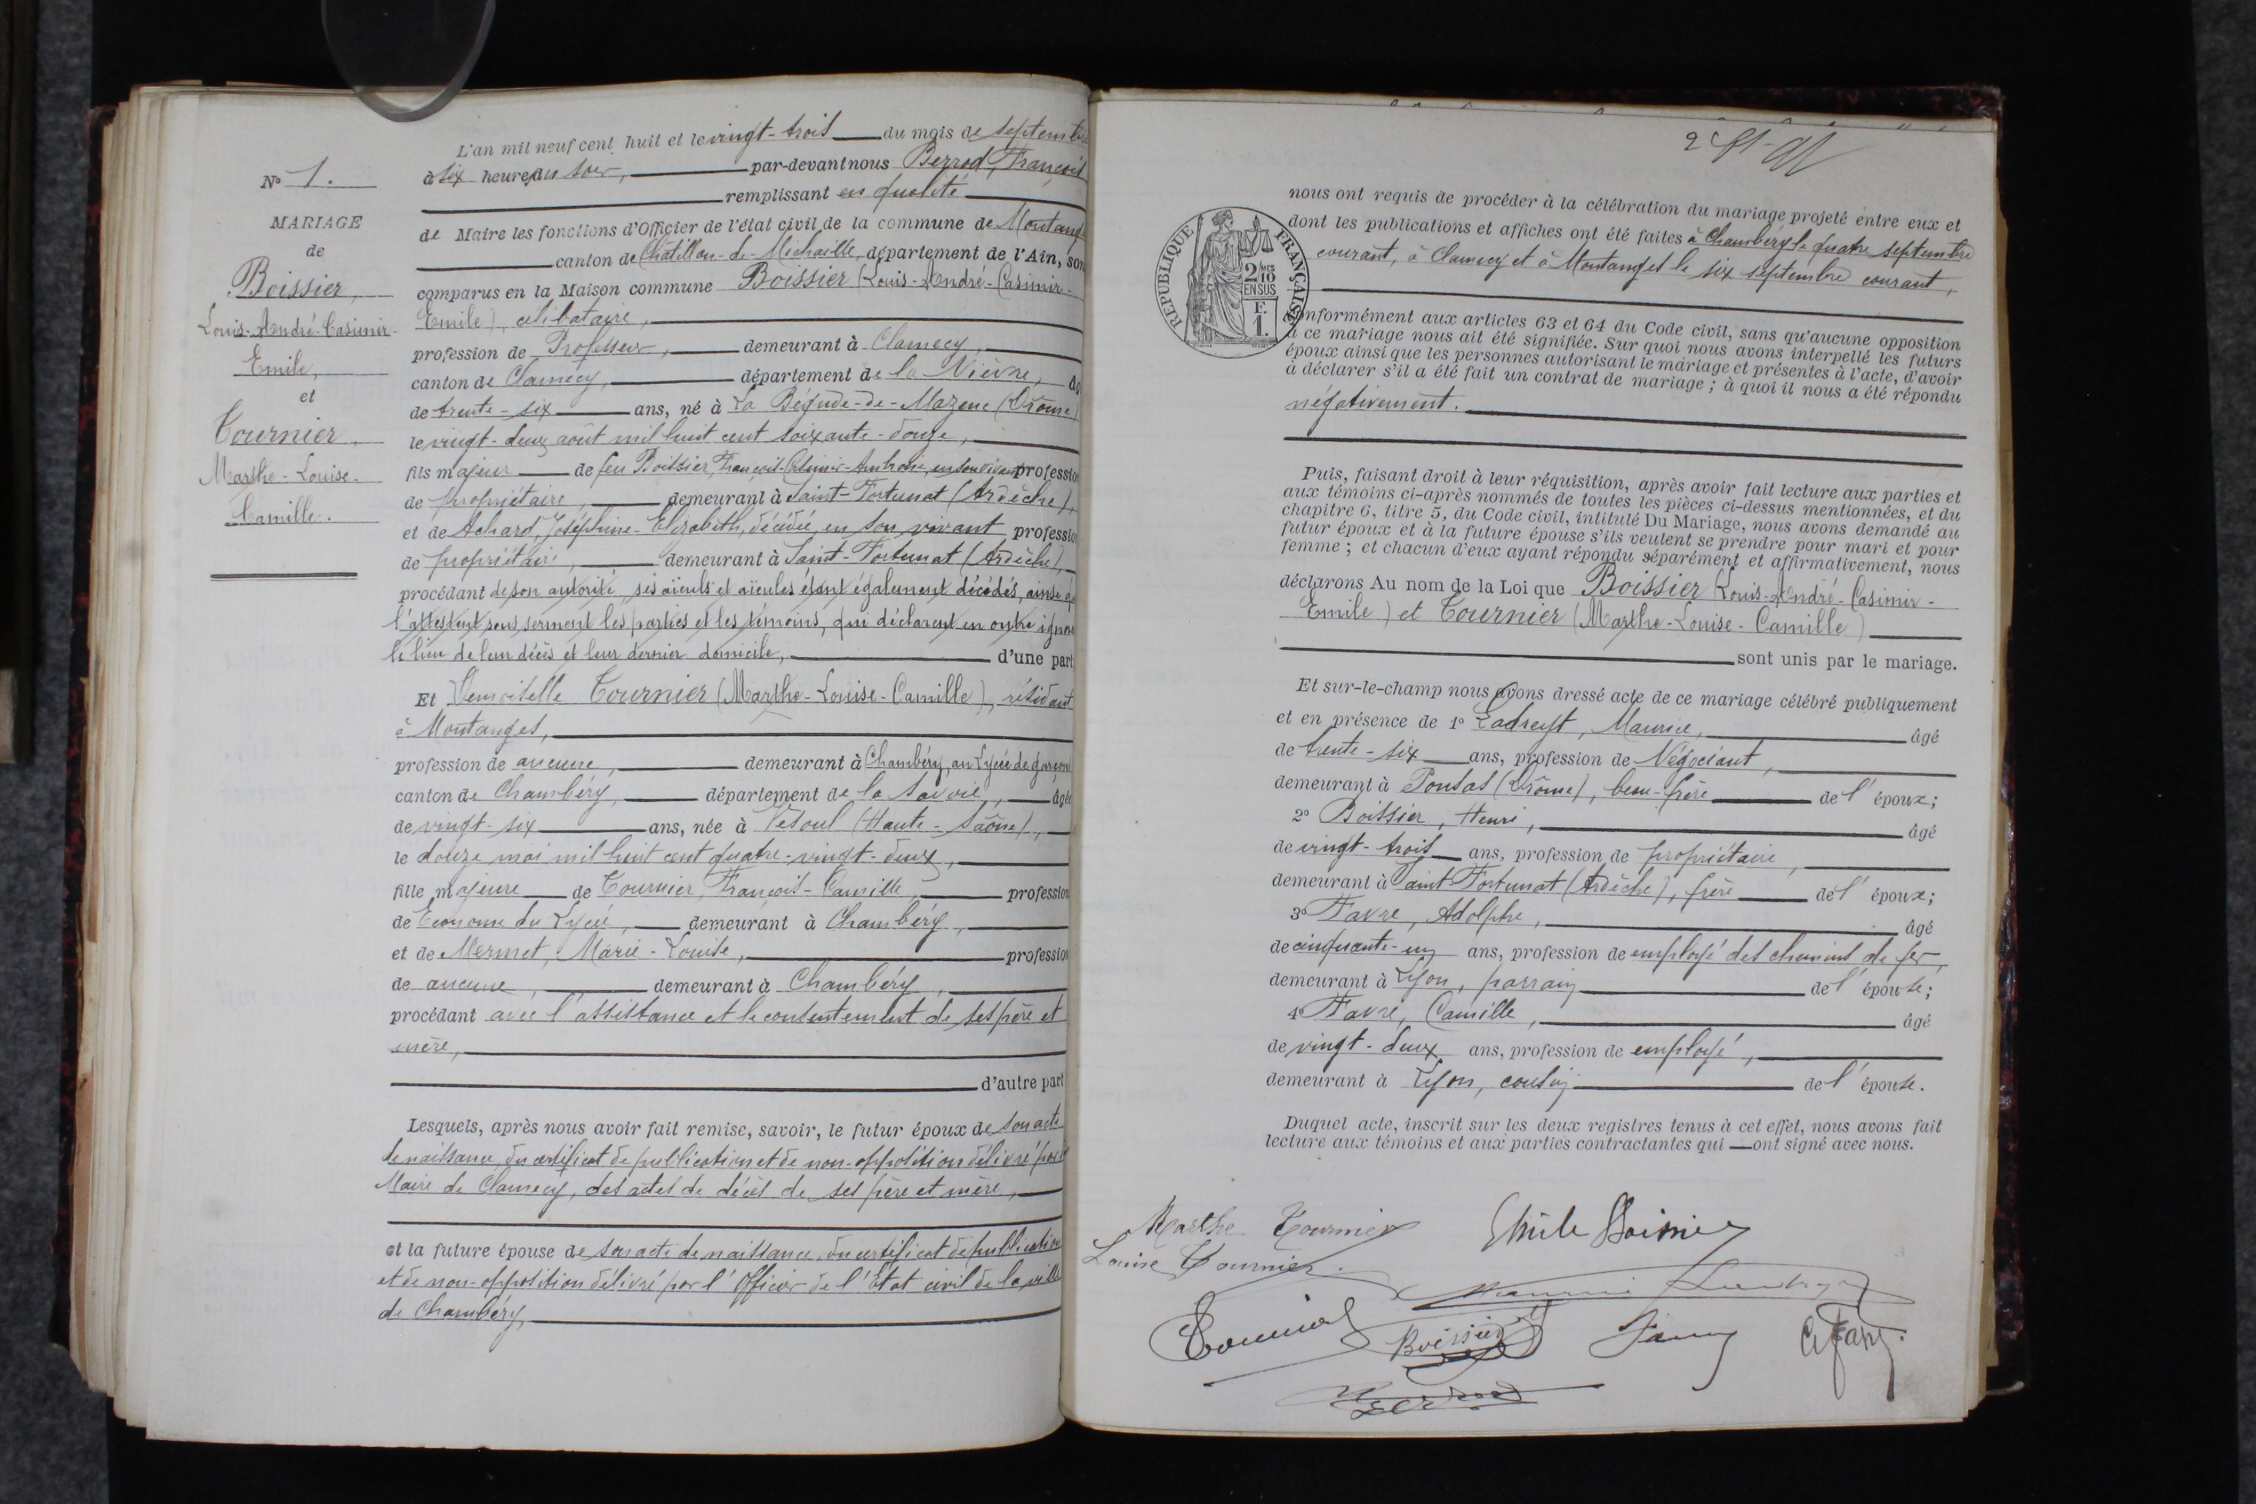 N° 1.
MARIAGE
de
Boissier,
Louis-André-Casimir-
Emile,
et
Tournier
Marthe-Louise-
Camille.
L'an mil neuf cent huit et le vingt-trois du mois de septembre
à six heures du soir, par-devant nous Berrod, François
remplissant en qualité
de Maire les fonctions d'Officier de l'état civil de la commune de Montanges
canton de Châtillon-de-Michaille, département de l'Ain, sont
comparus en la Maison commune Boissier (Louis-André-Casimir-
Emile), célibataire,
profession de Professeur, demeurant à Clamecy,
canton de Clamecy, département de la Nièvre, âgé
de trente-six ans, né à La Bégude-de-Mazenc (Drôme)
le vingt-deux août mil huit cent soixante-douze,
fils majeur de feu Boissier, François-Casimir-Ambroise, en son vivant profession
de propriétaire, demeurant à Saint-Fortunat (Ardèche),
et de Achard, Joséphine-Elizabeth, décédée, en son vivant profession
de propriétaire, demeurant à Saint-Fortunat (Ardèche),
procédant de son autorité, ses aïeuls et aïeules étant également décédés, ainsi que
l'attestent sous serment les parties et les témoins, qui déclarent en outre ignorer
le lieu de leur décès et leur dernier domicile, d'une part
Et Demoiselle Tournier (Marthe-Louise-Camille), résidant
à Montanges,
profession de aucune, demeurant à Chambéry, au Lycée de garçons
canton de Chambéry, département de la Savoie, âgée
de vingt-six ans, née à Vesoul (Haute-Saône),
le douze mai mil huit cent quatre-vingt-deux,
fille majeure de Tournier, François-Camille, profession
de Econome du Lycée, demeurant à Chambéry,
et de Mermet, Marie-Louise, profession
de aucune, demeurant à Chambéry,
procédant avec l'assistance et le consentement de ses père et
mère,
d'autre part
Lesquels, après nous avoir fait remise, savoir, le futur époux de son acte
de naissance, du certificat de publication et de non-opposition délivré par le
Maire de Clamecy, des actes de décès de ses père et mère,
et la future épouse de son acte de naissance, du certificat de publication
et de non-opposition délivré par l'Officier de l'Etat civil de la ville
de Chambéry,
RÉPUBLIQUE FRANÇAISE
2/10 EN SUS
F. 1.
nous ont requis de procéder à la célébration du mariage projeté entre eux et
dont les publications et affiches ont été faites à Chambéry le quatre septembre
courant, à Clamecy et à Montanges le six septembre courant,
conformément aux articles 63 et 64 du Code civil, sans qu'aucune opposition
à ce mariage nous ait été signifiée. Sur quoi nous avons interpellé les futurs
époux ainsi que les personnes autorisant le mariage et présentes à l'acte, d'avoir
à déclarer s'il a été fait un contrat de mariage ; à quoi il nous a été répondu
négativement.
Puis, faisant droit à leur réquisition, après avoir fait lecture aux parties et
aux témoins ci-après nommés de toutes les pièces ci-dessus mentionnées, et du
chapitre 6, titre 5, du Code civil, intitulé Du Mariage, nous avons demandé au
futur époux et à la future épouse s'ils veulent se prendre pour mari et pour
femme ; et chacun d'eux ayant répondu séparément et affirmativement, nous
déclarons Au nom de la Loi que Boissier (Louis-André-Casimir-
Emile) et Tournier (Marthe-Louise-Camille)
sont unis par le mariage.
Et sur-le-champ nous avons dressé acte de ce mariage célébré publiquement
et en présence de 1° Ladreyt, Maurice, âgé
de trente-six ans, profession de Négociant,
demeurant à Ponsas (Drôme), beau-frère de l'époux;
2° Boissier, Henri, âgé
de vingt-trois ans, profession de propriétaire,
demeurant à Saint Fortunat (Ardèche), frère de l'époux;
3° Favre, Adolphe, âgé
de cinquante-un ans, profession de employé des chemins de fer,
demeurant à Lyon, parrain de l'épouse;
4° Favre, Camille, âgé
de vingt-deux ans, profession de employé,
demeurant à Lyon, cousin de l'épouse.
Duquel acte, inscrit sur les deux registres tenus à cet effet, nous avons fait
lecture aux témoins et aux parties contractantes qui ont signé avec nous.
Marthe Tournier Emile Boissier
Louise Tournier. Maurice Ladreyt
Tournier Boissier Favre C. Favre.
Berrod